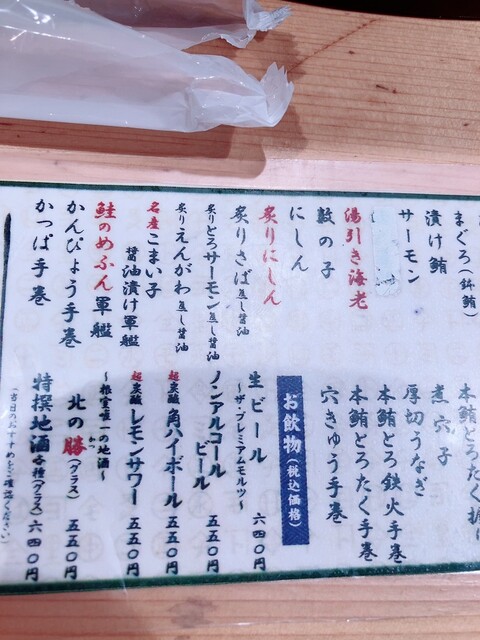 まぐろ(鉢鮪)
漬け鮪
サーモン
湯引き海老
数の子
にしん
炙りにしん
炙りさば 煮し醤油
炙りとろサーモン 煮し醤油
炙りえんがわ 煮し醤油
名産こまい子
醤油漬け軍艦
鮭のめふん軍艦
かんぴょう手巻
かっぱ手巻
本鮪とろたく
煮穴子
厚切うなぎ
本鮪とろ鉄火手巻
本鮪とろたく手巻
穴きゅう手巻
お飲物(税込価格)
生ビール
~ザ・プレミアムモルツ~
六四〇円
ノンアルコール
ビール
五五〇円
超炭酸 角ハイボール 五五〇円
超炭酸 レモンサワー 五五〇円
~根室唯一の地酒~
北の勝(グラス) 五五〇円
かつ
特撰地酒 種(グラス) 六四〇円
(当日のおすすめをご確認ください)